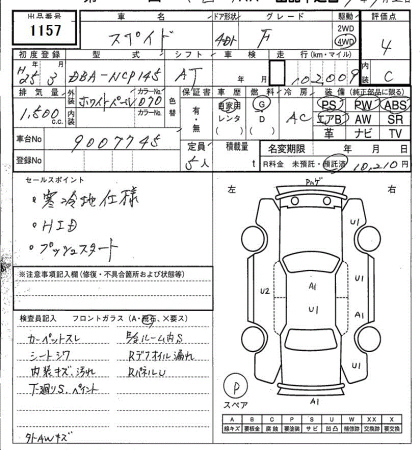 出品番号 車名 ドア形状 グレード 駆動 評価点
1157 スペイド 4Dr F 2WD 4WD 4
初度登録 型式 シフト 車検 走行(km・マイル) 内装
H25 3 DBA-NCP145 AT 年 月 102,009 C
排気量 外装 カラーNo. 内装 カラーNo. 色替 保証書 車歴 燃料 冷房 装備(純正部品に限る)
1,500c.c. ホワイトパール070 有・無 自家用 レンタ G D AC PS PW ABS
エアB AW SR
革 ナビ TV
車台No 9007745 定員 5人 積載量 t 名変期限 年 月 日
登録No R料金 未預託・預託済 10,210円
セールスポイント
・寒冷地仕様
・HID
・プッシュスタート
左 右
U1
U1
U2 A1 U1
A1
U1
A1
P
スペア
※注意事項記入欄(修復・不具合箇所および状態等)
検査員記入 フロントガラス(A・飛石、×要ス)
カーペットスレ
シートシワ Rデフオイル漏れ
内装キズ、汚れ RパネルU
下廻りS、ペイント
外AWキズ
A B C P S U W XX X
線キズ 要板金 腐蝕 要塗装 サビ 凹凸 補修跡 交換跡 要交換